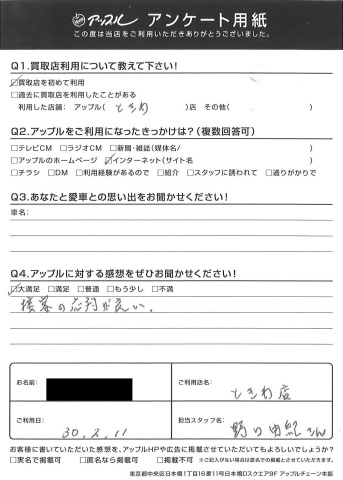 アップル アンケート用紙
この度は当店をご利用いただきありがとうございました。
Q1.買取店利用について教えて下さい!
☑買取店を初めて利用
□過去に買取店を利用したことがある
利用した店舗: アップル( ときわ )店 その他( )
Q2.アップルをご利用になったきっかけは?(複数回答可)
□テレビCM □ラジオCM □新聞・雑誌(媒体名/ )
□アップルのホームページ ☑インターネット(サイト名 )
□チラシ □DM □利用経験があるので □紹介 □スタッフに誘われて □通りがかりで
Q3.あなたと愛車との思い出をお聞かせください!
車名:
Q4.アップルに対する感想をぜひお聞かせください!
☑大満足 □満足 □普通 □もう少し □不満
接客の応対が良い。
お名前:
ご利用店名:
ときわ店
ご利用日:
30.2.11
担当スタッフ名:
野口由紀さん
お客様に書いていただいた感想を、アップルHPや広告に掲載させていただいてもよろしいでしょうか?
□実名で掲載可 □匿名なら掲載可 □掲載不可 ※ご記入がない場合は匿名での掲載とさせていただきます。
東京都中央区日本橋1丁目16番11号日本橋Dスクエア9F アップルチェーン本部